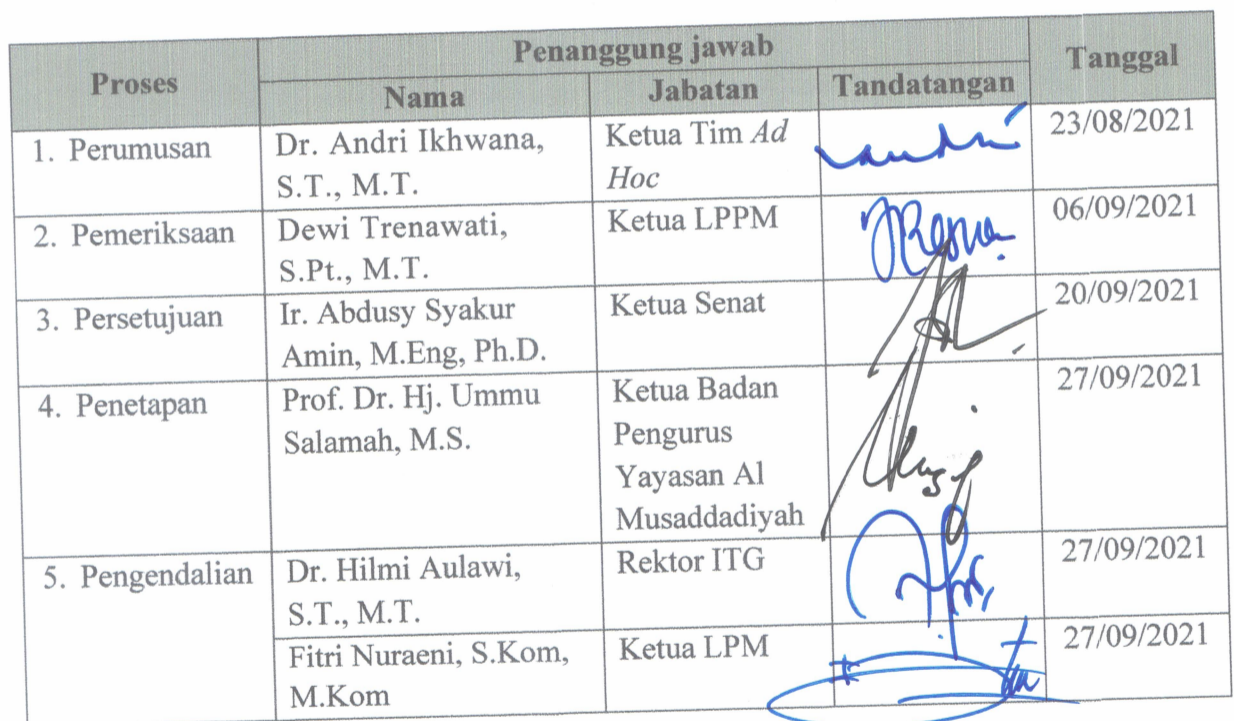 Proses
Penanggung jawab
Tanggal
Nama
Jabatan
Tandatangan
1. Perumusan
Dr. Andri Ikhwana,
S.T., M.T.
Ketua Tim Ad
Hoc
23/08/2021
2. Pemeriksaan
Dewi Trenawati,
S.Pt., M.T.
Ketua LPPM
06/09/2021
3. Persetujuan
Ir. Abdusy Syakur
Amin, M.Eng, Ph.D.
Ketua Senat
20/09/2021
4. Penetapan
Prof. Dr. Hj. Ummu
Salamah, M.S.
Ketua Badan
Pengurus
Yayasan Al
Musaddadiyah
27/09/2021
5. Pengendalian
Dr. Hilmi Aulawi,
S.T., M.T.
Rektor ITG
27/09/2021
Fitri Nuraeni, S.Kom,
M.Kom
Ketua LPM
27/09/2021